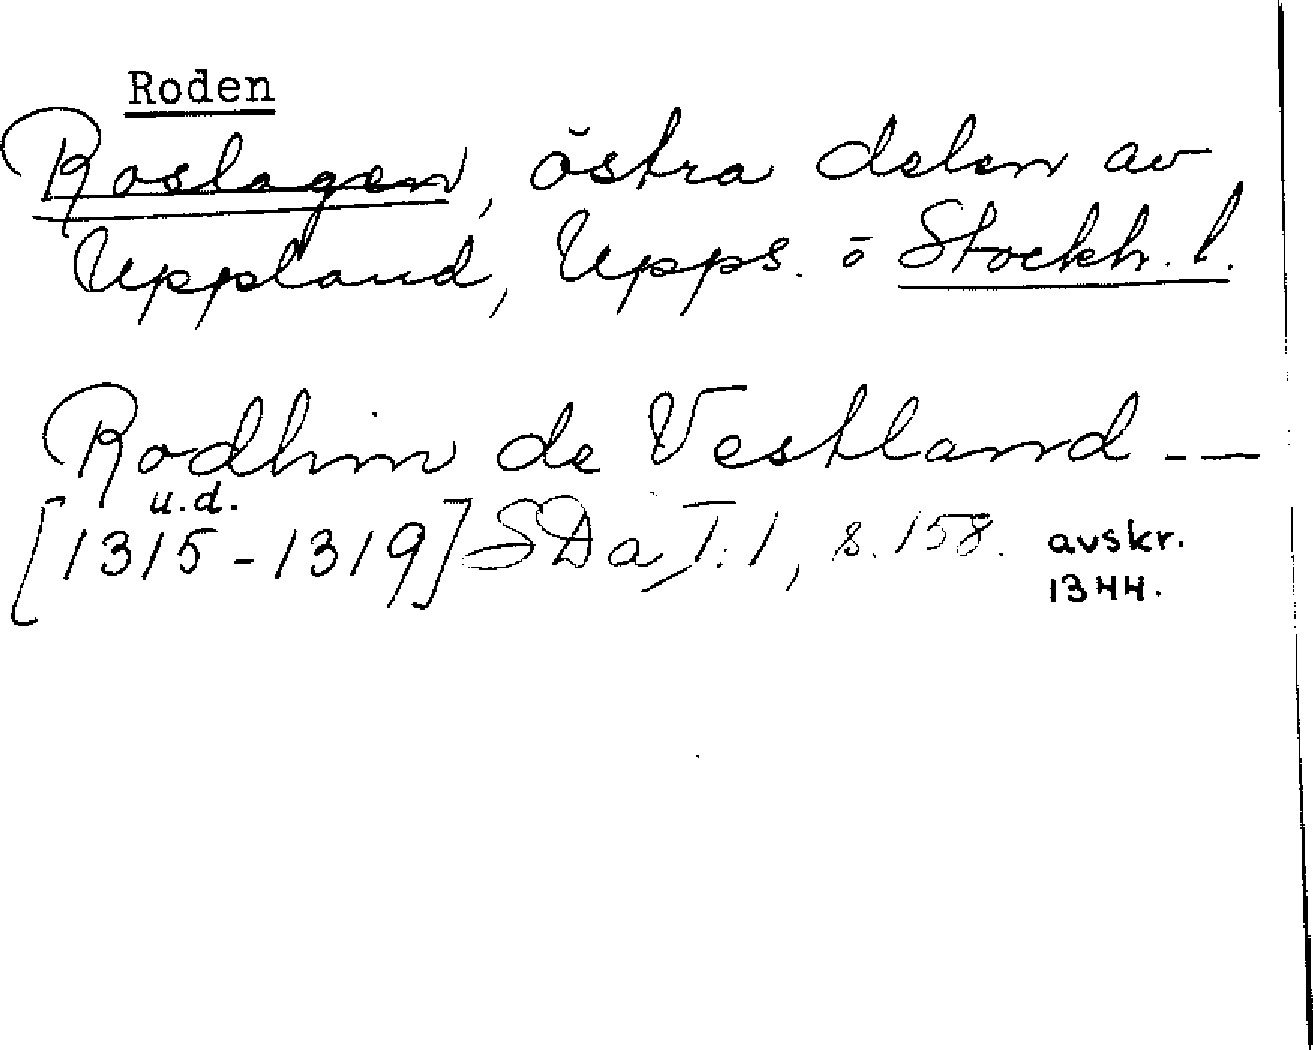 Roden
Roslagen, östra delen av
Uppland, Upps. o Stockh. l.
Rodhin de Vestland - —
u.d.
[1315-1319] SDa, I:1, s. 158. avskr.
1344.